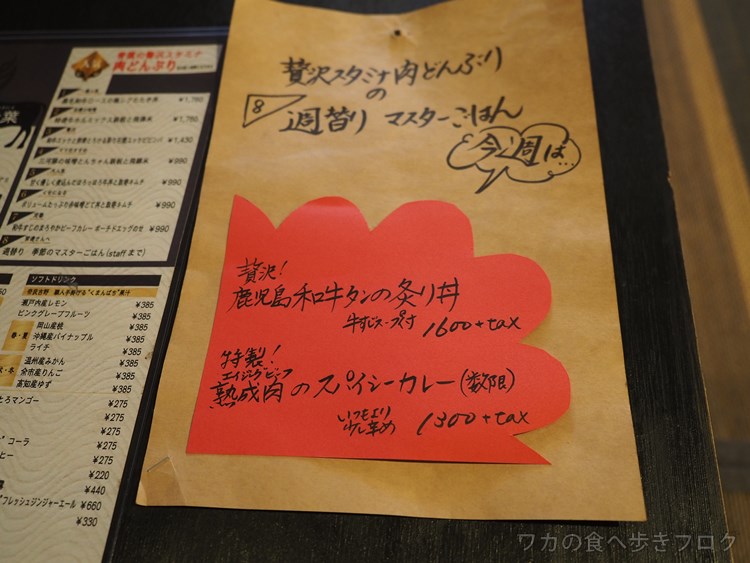 贅沢スタミナ肉どんぶり
の
8 週替り マスターごはん
今週は…
贅沢!
鹿児島和牛タンの炙り丼
牛すじスープ付 1600+tax
特製!
エイジングビーフ
熟成肉のスパイシーカレー(数限)
いつもより
少し辛め 1300+tax
肉どんぶり
¥1,780
¥1,780
¥1,430
¥990
¥990
¥990
¥990
週替り 季節のマスターごはん(staffまで)
ソフトドリンク
瀬戸内産レモン ¥385
ピンクグレープフルーツ ¥385
岡山産桃 ¥385
春・夏 沖縄産パイナップル ¥385
ライチ ¥385
温州産みかん ¥385
秋・冬 余市産りんご ¥385
高知産ゆず ¥385
たろマンゴー ¥385
¥275
コーラ ¥275
ヒー ¥275
¥220
¥440
フレッシュジンジャーエール ¥660
¥330
ワカの食べ歩きブログ